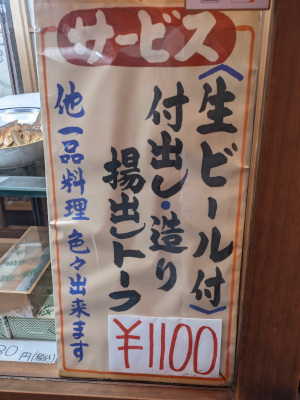 サービス
〈生ビール付〉
付出し・造り
揚出しトーフ
他一品料理 色々出来ます
¥1100
30円(税込)